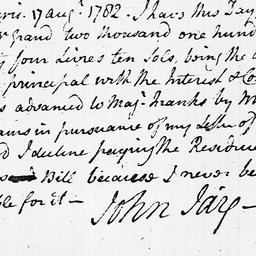 ris. 17 augt. 1782. I have this Day
Grand two thousand one hund
ty four Livres ten Sols, being the a
principal with the Interest & Co
s advanced to Majr. Franks by M
ains in pursuance of my Letter of
d I decline paying the Residue
Bill because I never be
ble for it —
John Jay —